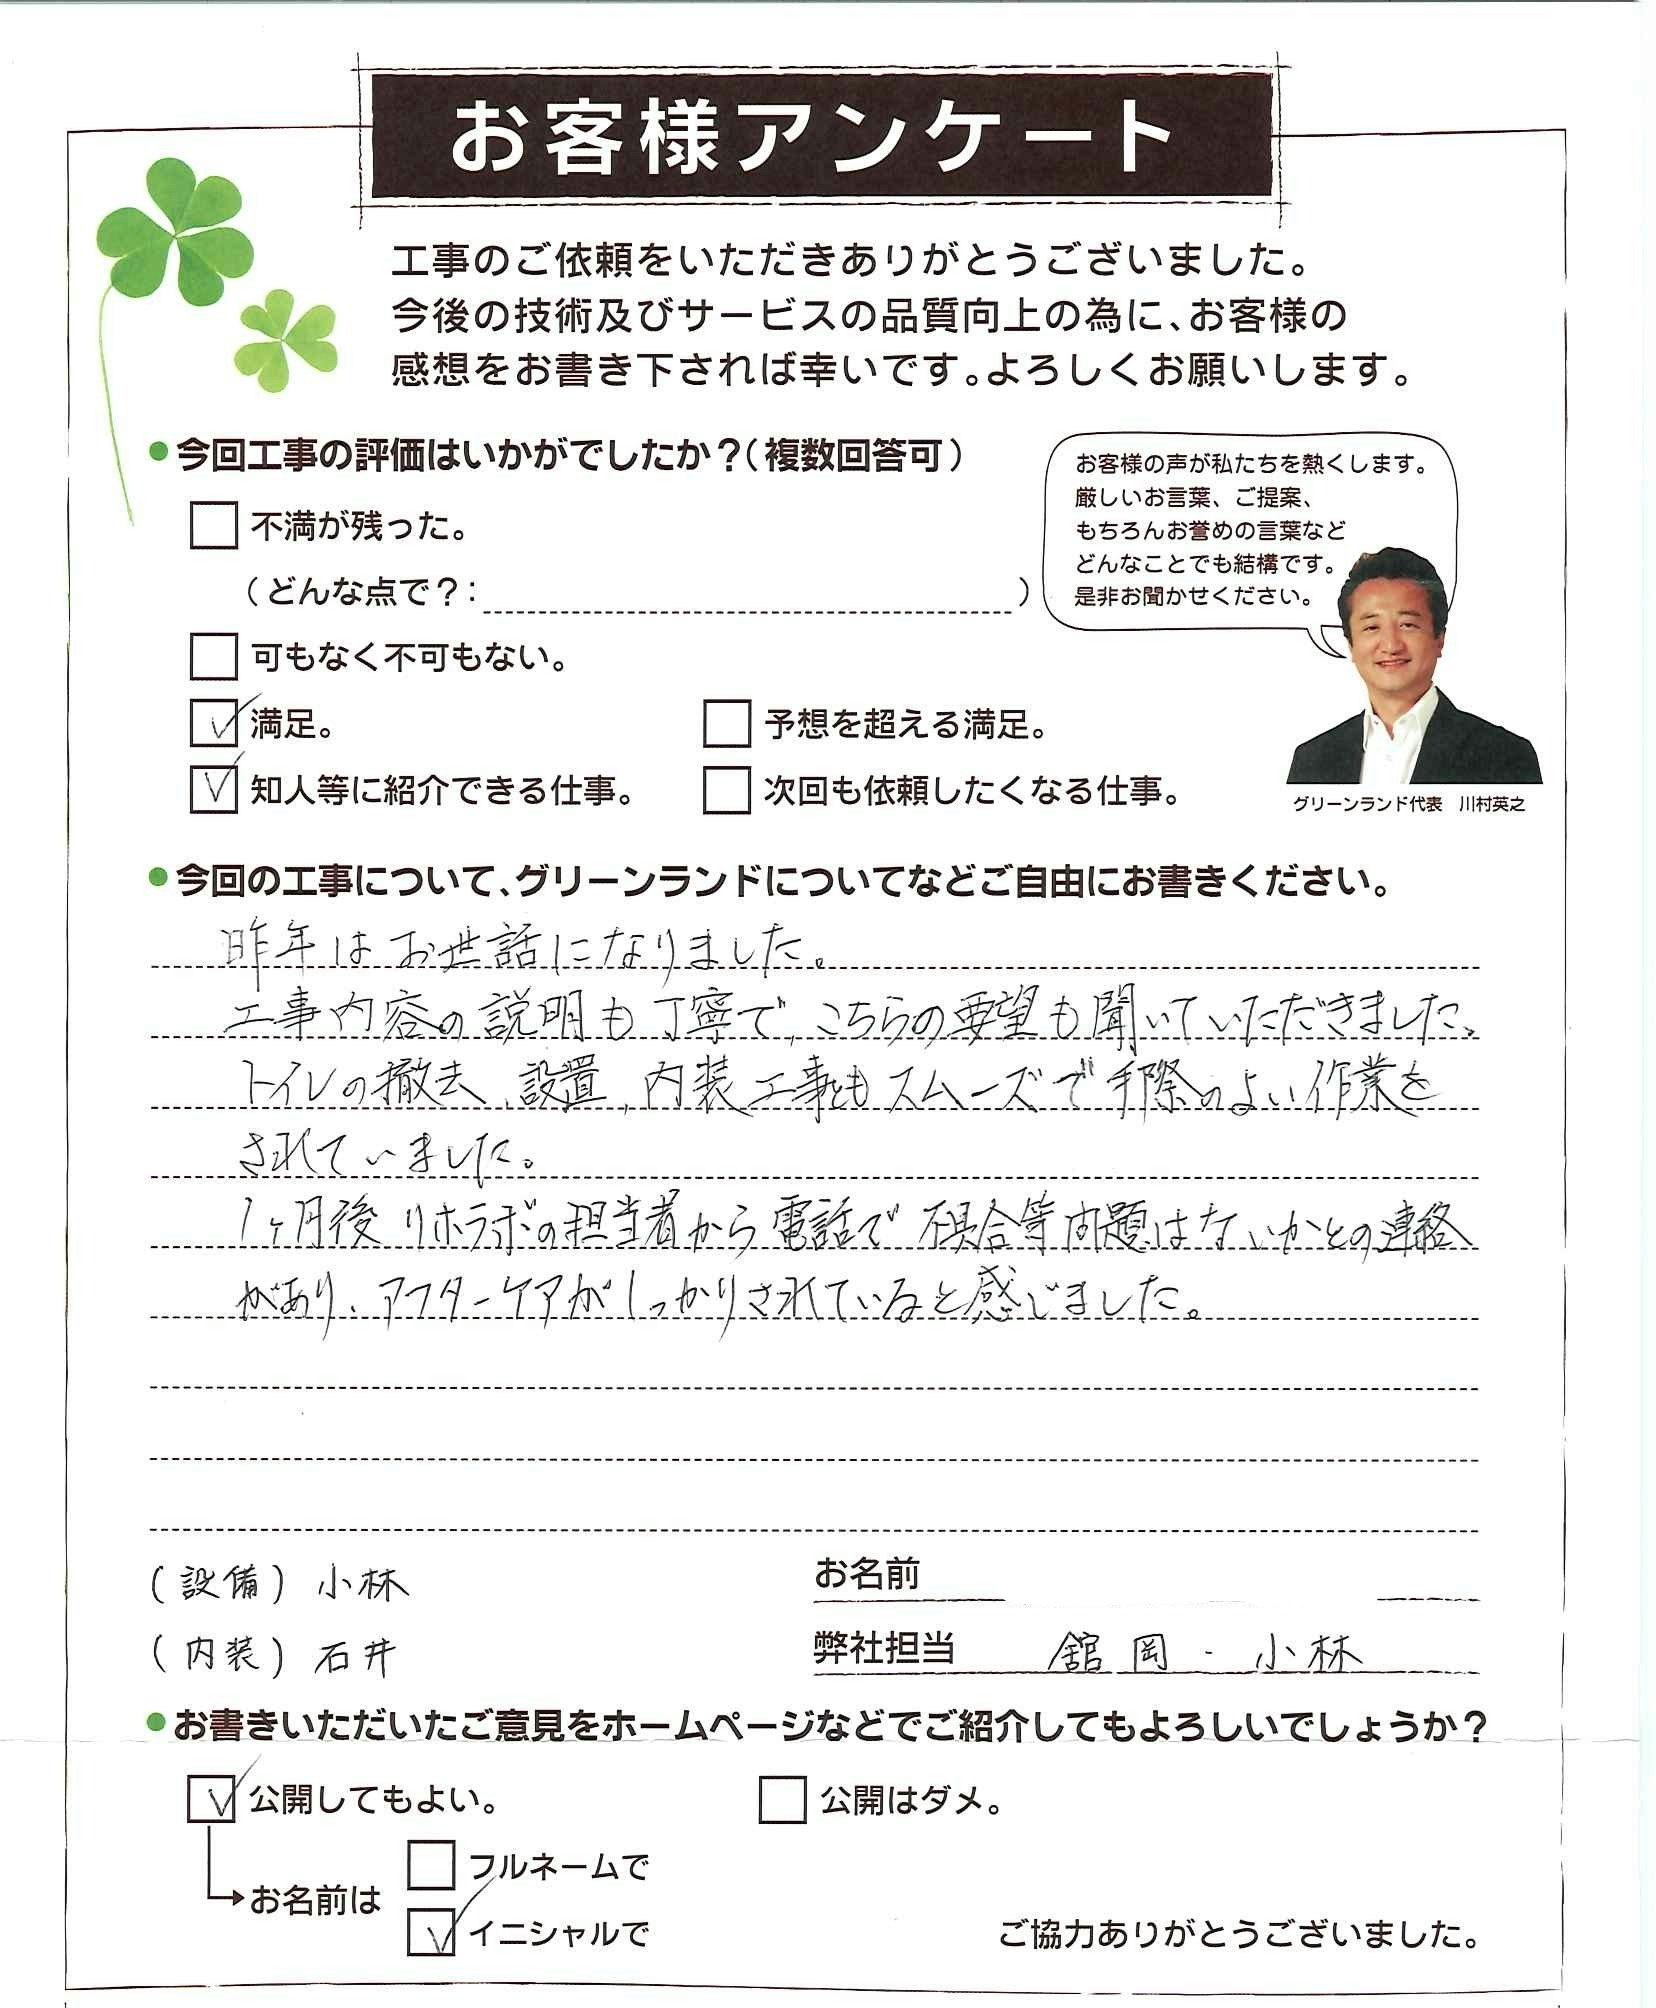 お客様アンケート
工事のご依頼をいただきありがとうございました。
今後の技術及びサービスの品質向上の為に、お客様の
感想をお書き下されれば幸いです。よろしくお願いします。
●今回工事の評価はいかがでしたか?(複数回答可)
不満が残った。
(どんな点で?: )
可もなく不可もない。
満足。
予想を超える満足。
知人等に紹介できる仕事。
次回も依頼したくなる仕事。
お客様の声が私たちを熱くします。
厳しいお言葉、ご提案、
もちろんお誉めの言葉など
どんなことでも結構です。
是非お聞かせください。
グリーンランド代表 川村英之
●今回の工事について、グリーンランドについてなどご自由にお書きください。
昨年はお世話になりました。
工事内容の説明も丁寧で、こちらの要望も聞いていただきました。
トイレの撤去、設置、内装工事ともスムーズで手際のよい作業を
されていました。
1ヶ月後リホラボの担当者から電話で不具合等問題はないかとの連絡
があり、アフターケアがしっかりされていると感じました。
(設備) 小林
お名前
(内装) 石井
弊社担当 舘岡・小林
●お書きいただいたご意見をホームページなどでご紹介してもよろしいでしょうか?
公開してもよい。
公開はダメ。
フルネームで
お名前は
イニシャルで
ご協力ありがとうございました。